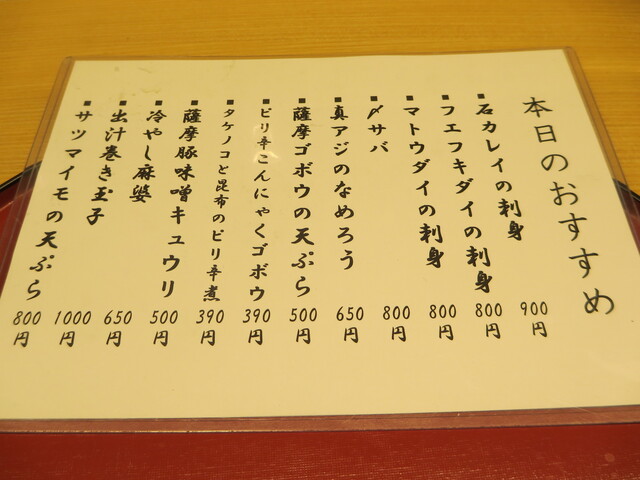 本日のおすすめ
■石カレイの刺身 900円
■フエフキダイの刺身 800円
■マトウダイの刺身 800円
■〆サバ 800円
■真アジのなめろう 650円
■薩摩ゴボウの天ぷら 500円
■ピリ辛こんにゃくゴボウ 390円
■タケノコと昆布のピリ辛煮 390円
■薩摩豚味噌キュウリ 500円
■冷やし麻婆 650円
■出汁巻き玉子 1000円
■サツマイモの天ぷら 800円